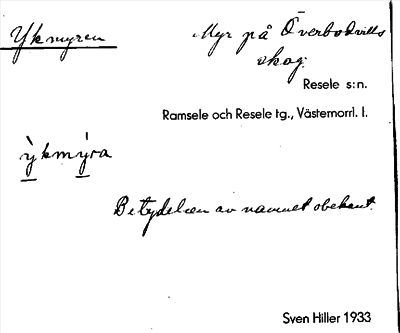 Ykmyren
Myr på Överbodvills
skog.
Resele s:n.
Ramsele och Resele tg., Västernorrl. l.
ỳkmýra
Betydelsen av namnet obekant.
Sven Hiller 1933